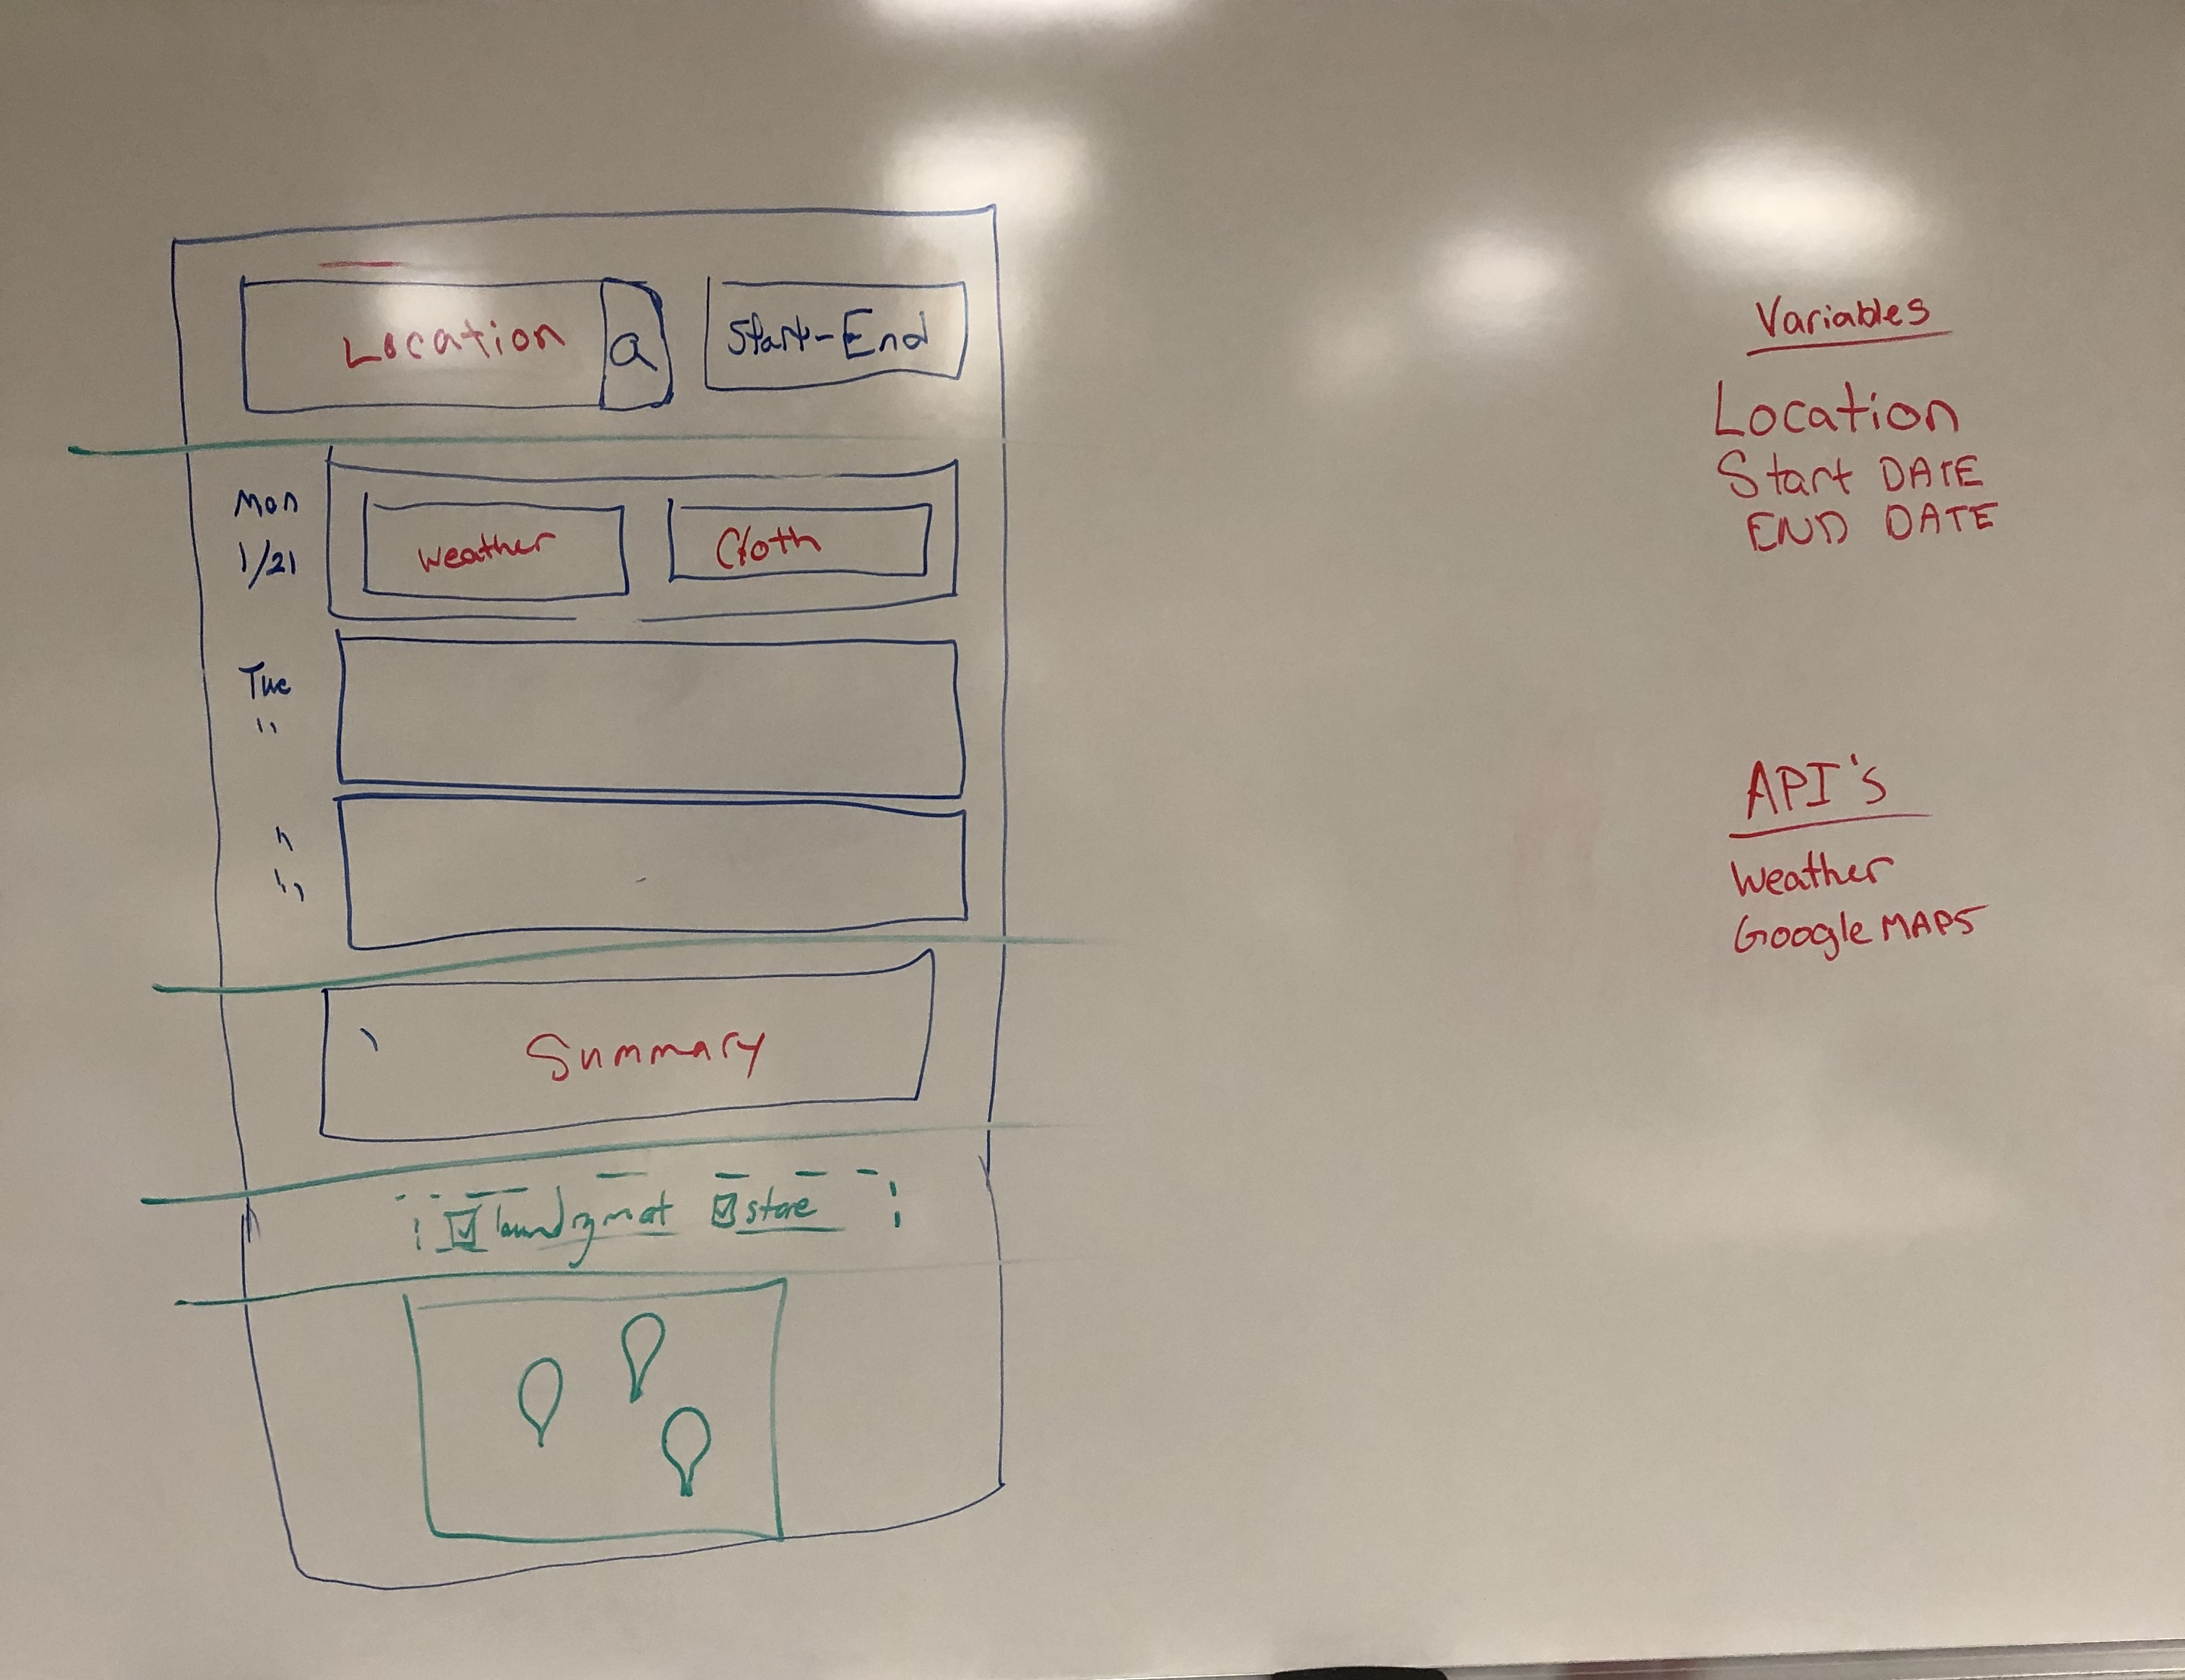 Location
Start-End
Mon
1/21
Weather
Cloth
Tue
"
"
"
Summary
laundrymat store
Variables
Location
Start DATE
END DATE
API's
Weather
Google MAPS